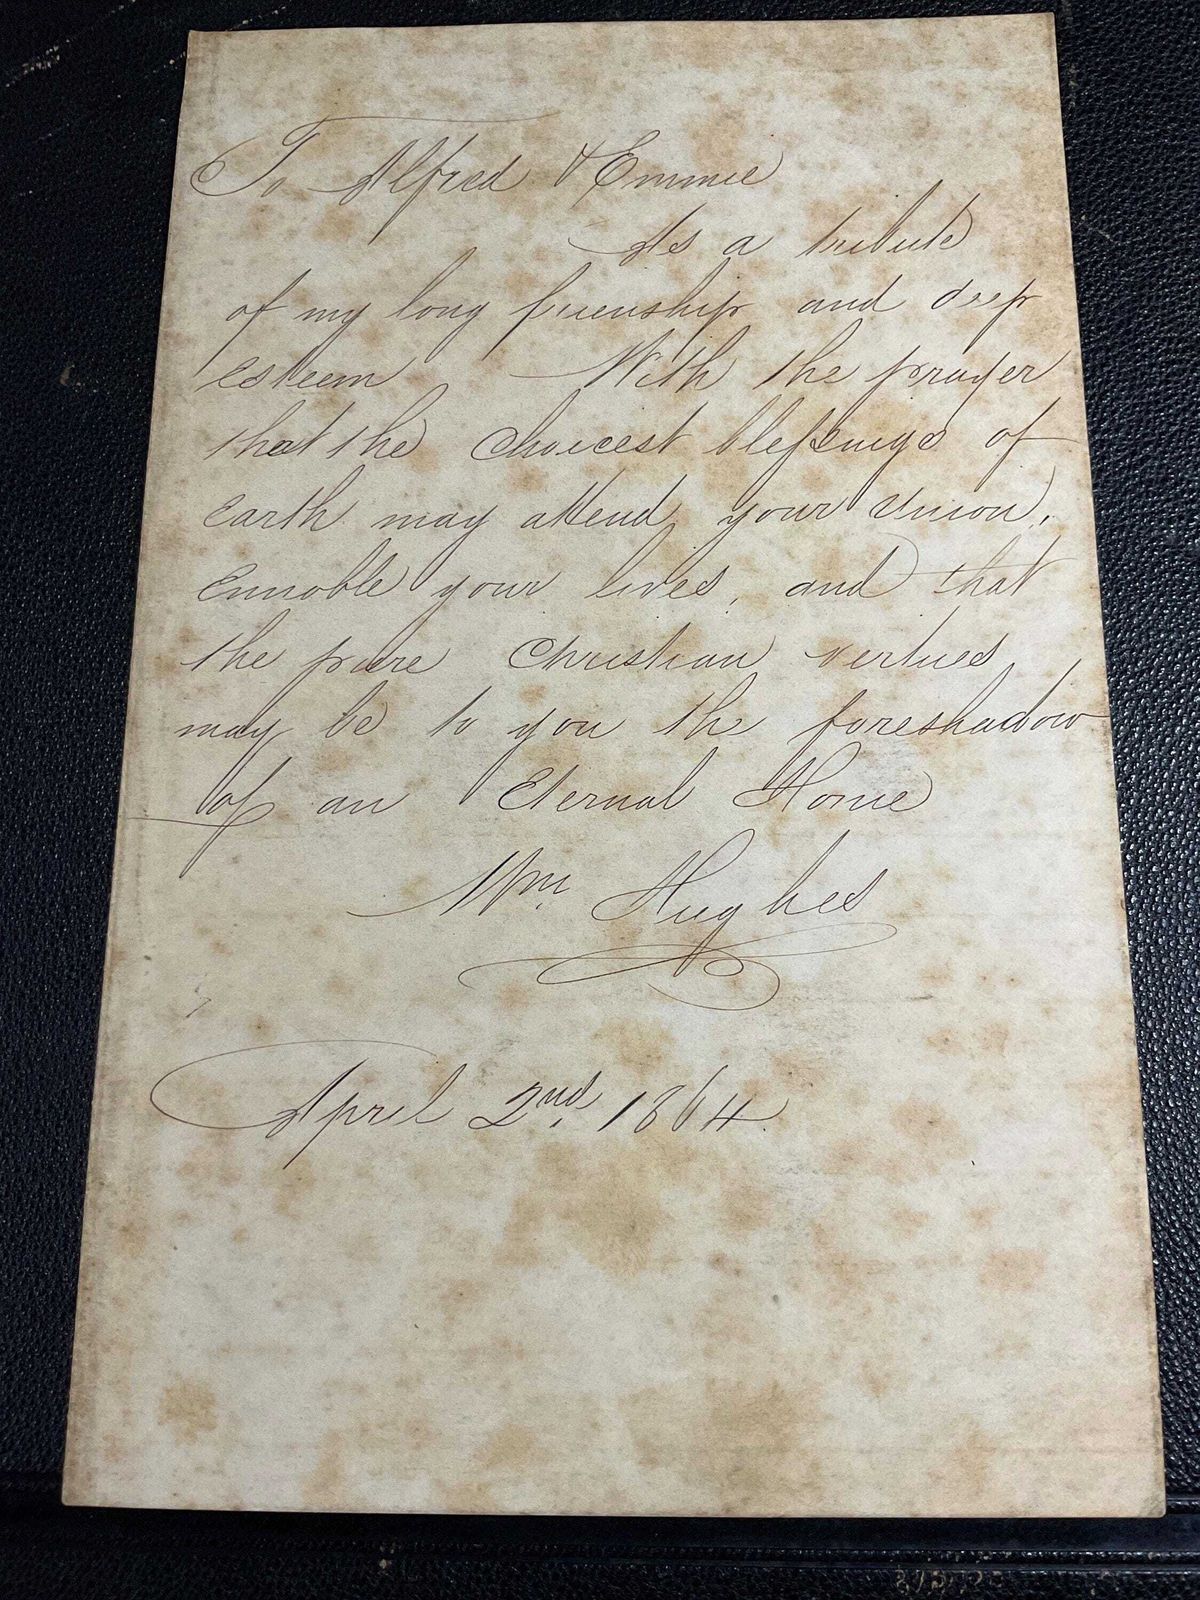 To Alfred & Emmie
As a tribute
of my long frienship and deep
esteem With the prayer
that the choicest blessings of
earth may attend your Union,
ennoble your lives, and that
the pure Christian virtues
may be to you the foreshadow
of an Eternal Home
Wm. Hughes
April 2nd. 1864.